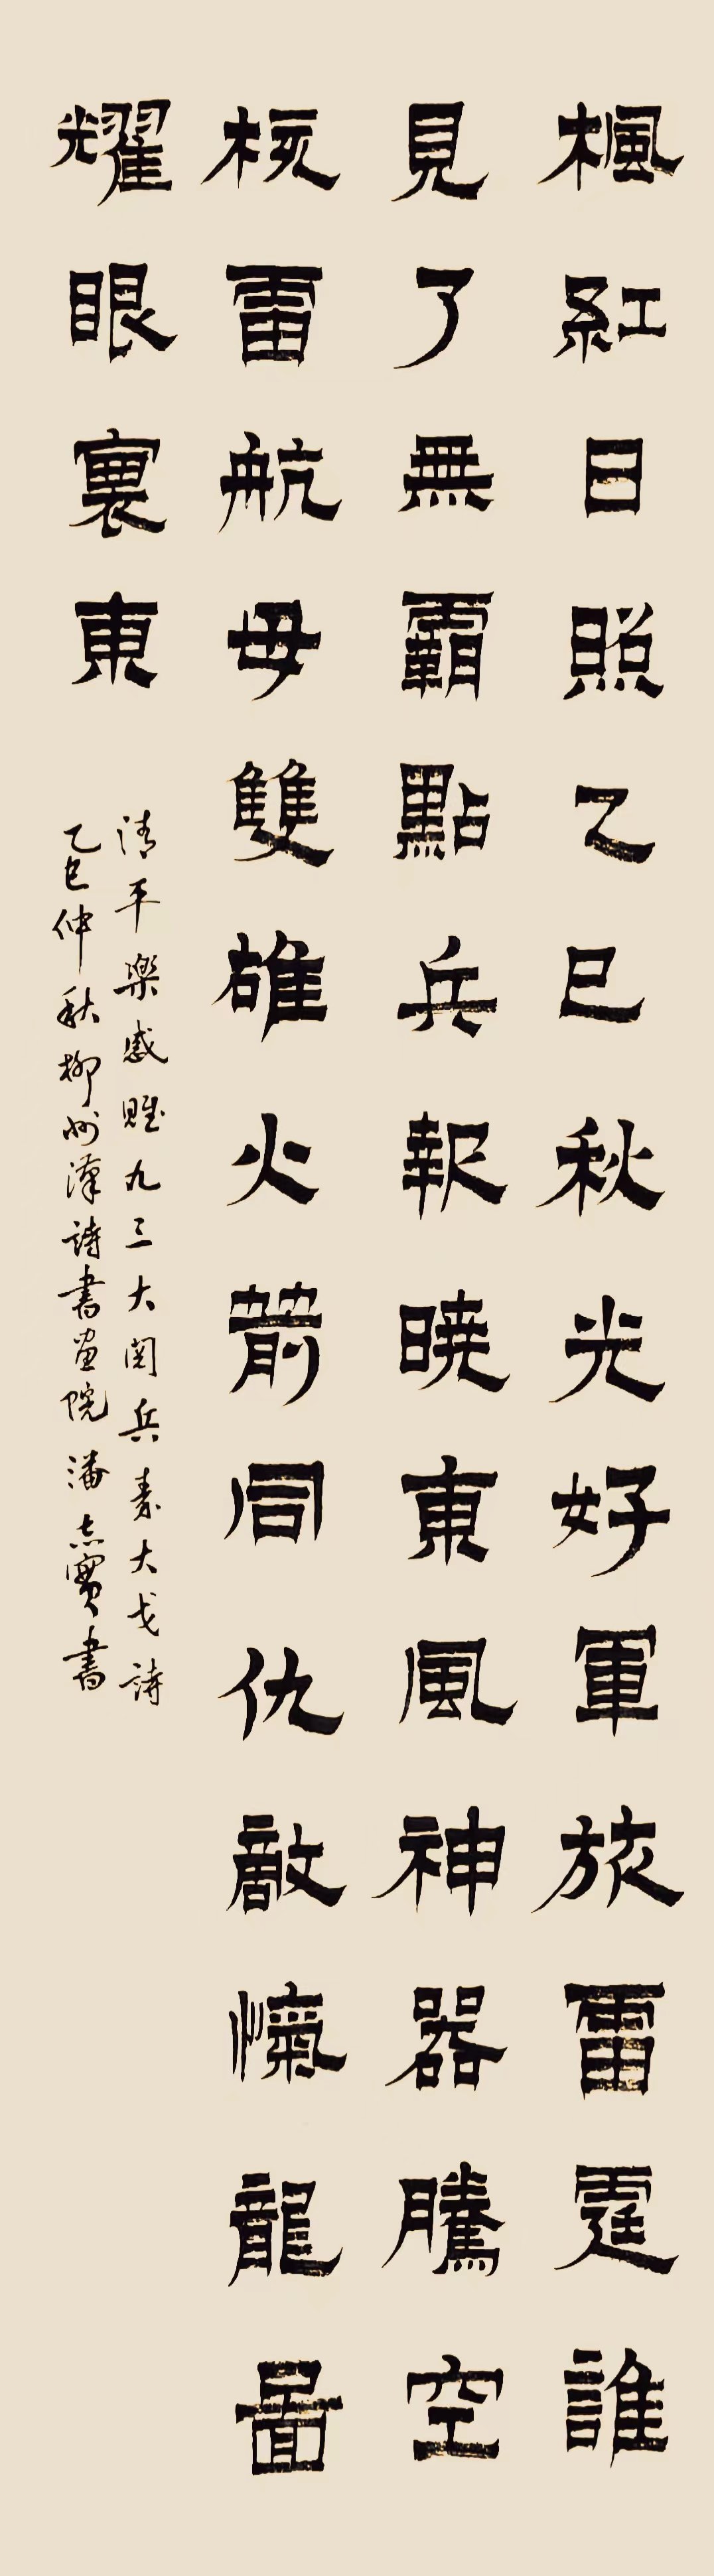 楓紅日照乙巳秋光好軍旅雷霆誰
見了無霸點兵報曉東風神器騰空
核雷航母雙雄火箭同仇敵愾龍圖
耀眼寰東
清平樂感賦九三大閱兵大戈詩
乙巳仲秋柳州漢詩書畫院潘志實書